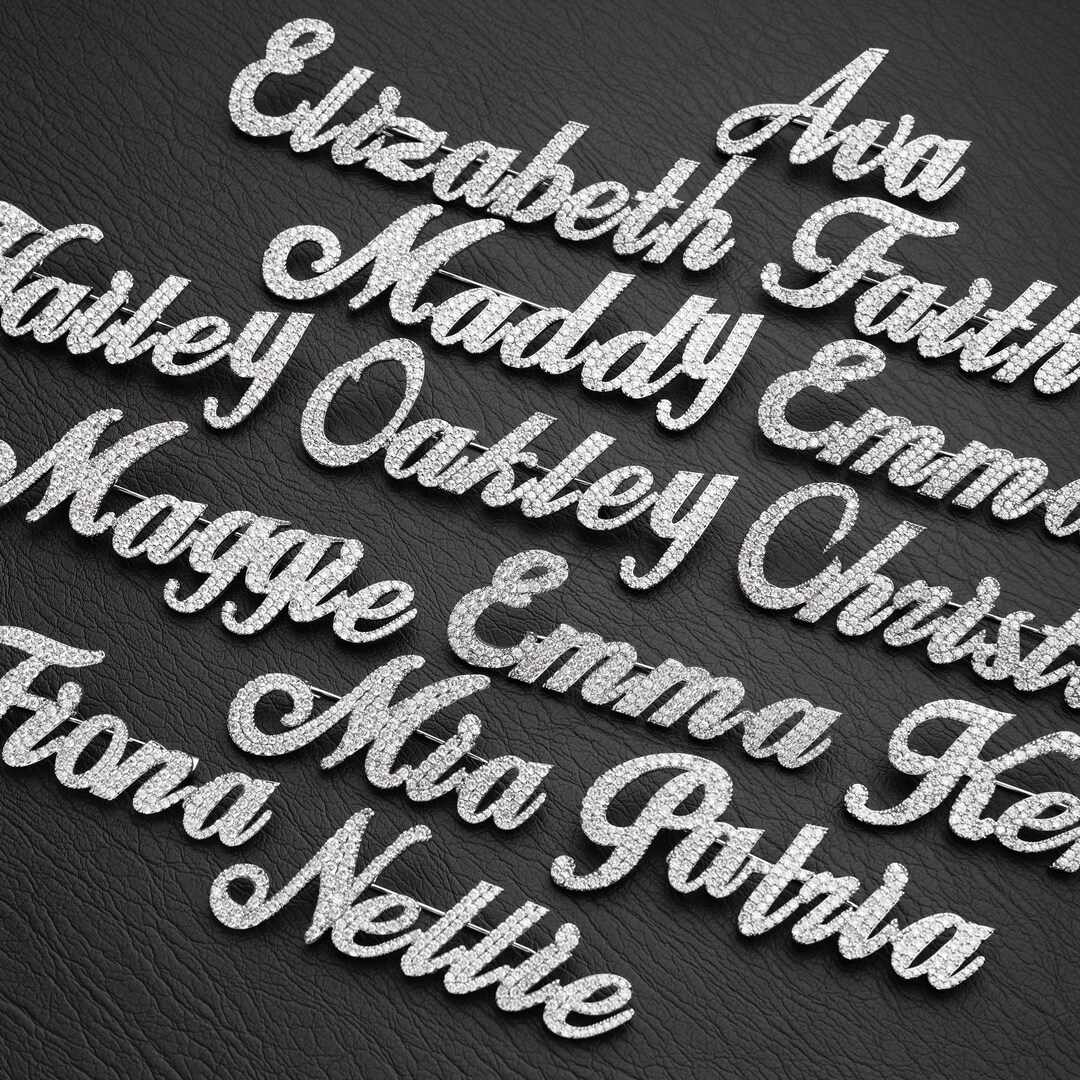 Elizabeth
Ava
Hailey
Maddy
Faith
Oakley
Emma
Maggie
Emma
Christ
Fiona
Mia
Ke
Patria
Nellie